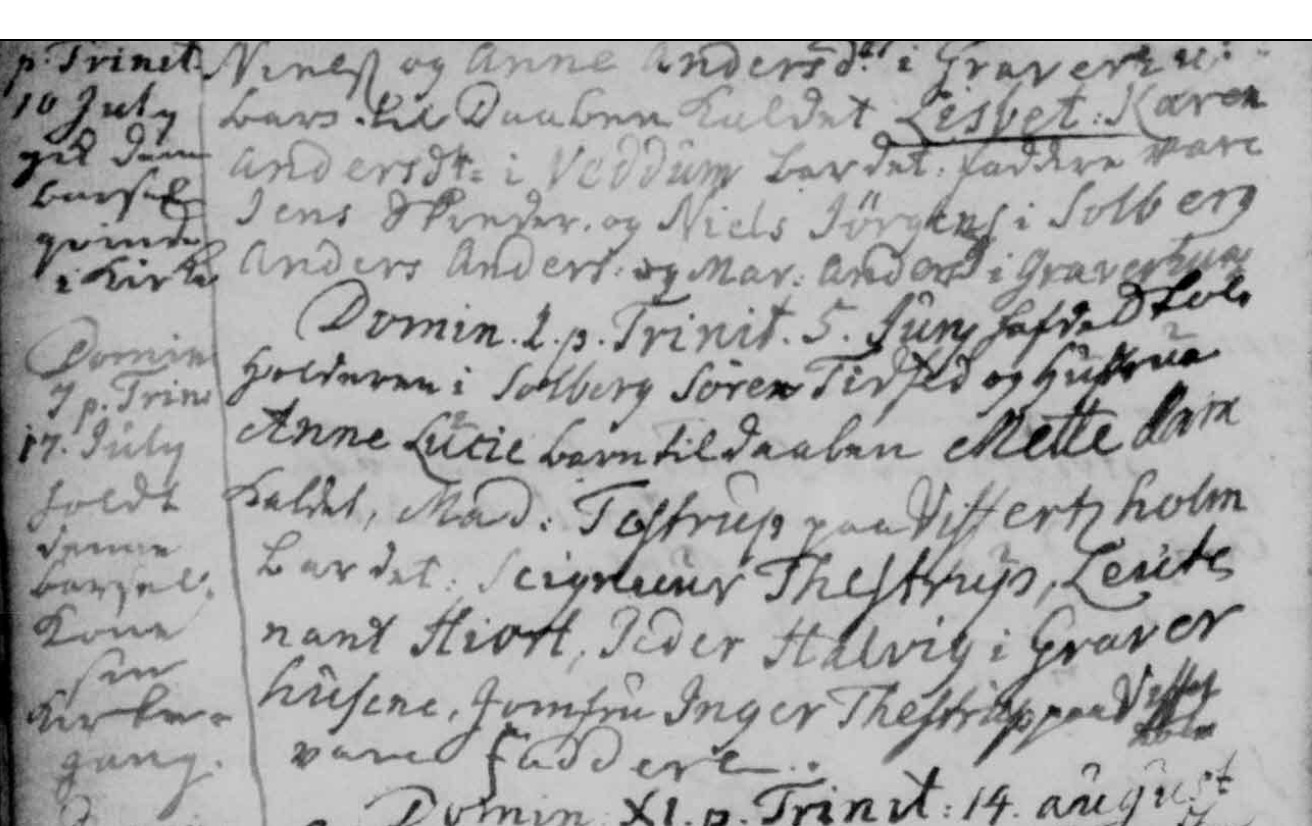 p. Trinit.
10 July
gik denne
barsel
qvinde
i Kirke
Domin
7 p. Trini
17. July
holdt
denne
barsel.
Kone
sin
Kirke-
gang.
Nielss og Anne Andersd. i Graverhu
bars til Daaben kaldet Lisbet. Karen
Andersdt. i Veddum bar det. faddere vare
Jens Skreder. og Niels Jörgens. i Solberg
Anders Anders. og Mar. Anders i Graverhuse
Domin. 2. p. Trinit. 5. Juny hafde
holderen i Solberg Sören Tidsed og Hustrue
Anne Lucie barn til daaben Mette
kaldet, Mad: Tøstrup paa Viffertzholm
bar det: Seigneur Thestrup, Leute
nant Hiort, Peder Halvig i Graver
husene, Jomfru Inger Thestrup paa Viffertz
holm
vare faddere.
Domin. XI. p. Trinit: 14. august